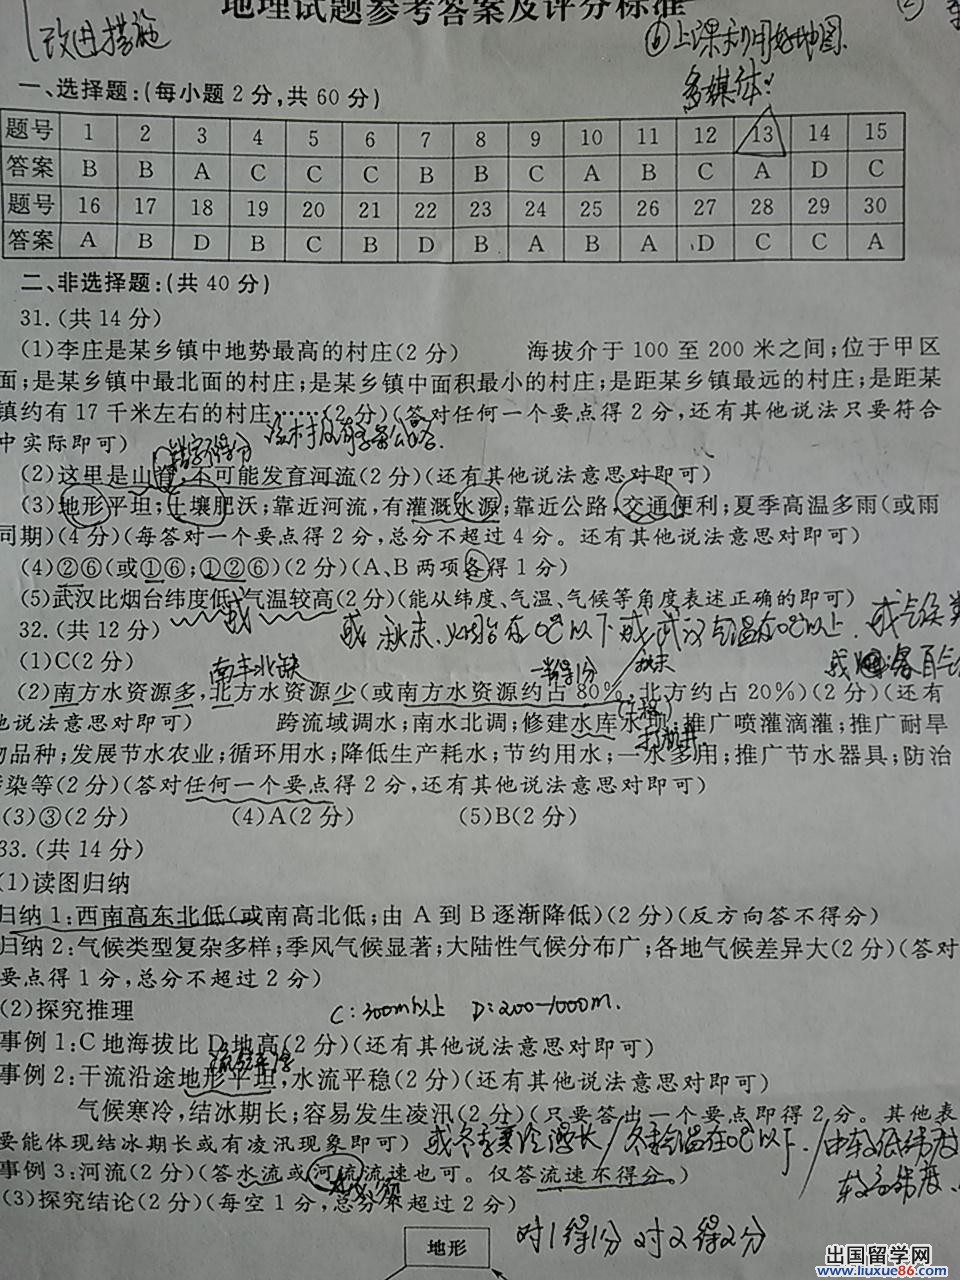 地理试题参考答案及评分标准
改进措施
⑥上课利用好地图.
多媒体:
一、选择题:(每小题2分,共60分)
题号 1 2 3 4 5 6 7 8 9 10 11 12 13 14 15
答案 B B A C C C B B C A B C A D C
题号 16 17 18 19 20 21 22 23 24 25 26 27 28 29 30
答案 A B D B C B D B A B A D C C A
二、非选择题:(共40分)
31.(共14分)
(1)李庄是某乡镇中地势最高的村庄(2分) 海拔介于100至200米之间;位于甲区
面;是某乡镇中最北面的村庄;是某乡镇中面积最小的村庄;是距某乡镇最远的村庄;是距某
镇约有17千米左右的村庄……(2分)(答对任何一个要点得2分,还有其他说法只要符合
中实际即可)
错字不得分
(2)这里是山脊,不可能发育河流(2分)(还有其他说法意思对即可)
(3)地形平坦;土壤肥沃;靠近河流,有灌溉水源;靠近公路,交通便利;夏季高温多雨(或雨
同期)(4分)(每答对一个要点得2分,总分不超过4分。还有其他说法意思对即可)
(4)②⑥(或①⑥;①②⑥)(2分)(A、B两项各得1分)
(5)武汉比烟台纬度低,气温较高(2分)(能从纬度、气温、气候等角度表述正确的即可)
或
32.(共12分)
或 秋末、烟台在0℃以下或武汉气温在0℃以上.
(1)C(2分)
南丰北缺
一半得1分
(2)南方水资源多,北方水资源少(或南方水资源约占80%,北方约占20%)(2分)(还有
他说法意思对即可) 跨流域调水;南水北调;修建水库水坝;推广喷灌滴灌;推广耐旱
物品种;发展节水农业;循环用水;降低生产耗水;节约用水;一水多用;推广节水器具;防治
污染等(2分)(答对任何一个要点得2分,还有其他说法意思对即可)
(3)③(2分) (4)A(2分) (5)B(2分)
33.(共14分)
(1)读图归纳
归纳1:西南高东北低(或南高北低;由A到B逐渐降低)(2分)(反方向答不得分)
归纳2:气候类型复杂多样;季风气候显著;大陆性气候分布广;各地气候差异大(2分)(答对
要点得1分,总分不超过2分)
(2)探究推理
C:300m以上 D:200-1000m.
事例1:C地海拔比D地高(2分)(还有其他说法意思对即可)
事例2:干流沿途地形平坦,水流平稳(2分)(还有其他说法意思对即可)
气候寒冷,结冰期长;容易发生凌汛(2分)(只要答出一个要点即得2分。其他表
要能体现结冰期长或有凌汛现象即可)
或冬季寒冷漫长/冬季气温在0℃以下./由较低纬度
较高纬度.
事例3:河流(2分)(答水流或河流流速也可。仅答流速不得分。)
(3)探究结论(2分)(每空1分,总分不超过2分)
对1得1分 对2得2分
地形
出国留学网
www.liuxue86.com